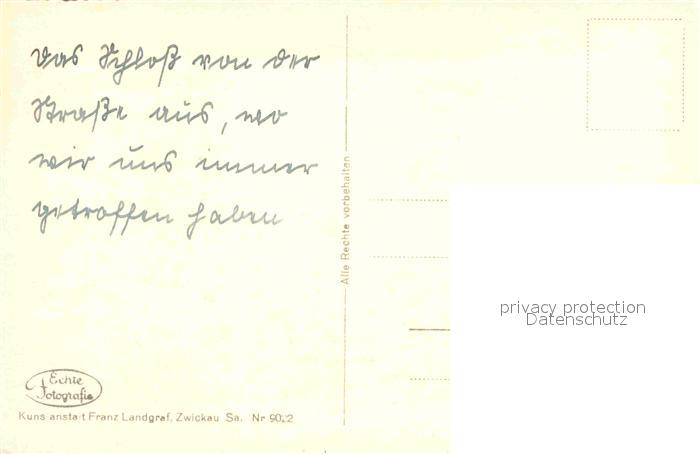 Das Schloß von der
Straße aus, wo
wir uns immer
getroffen haben
Alle Rechte vorbehalten
privacy protection
Datenschutz
Echte
Fotografie
Kunstanstalt Franz Landgraf, Zwickau Sa. Nr